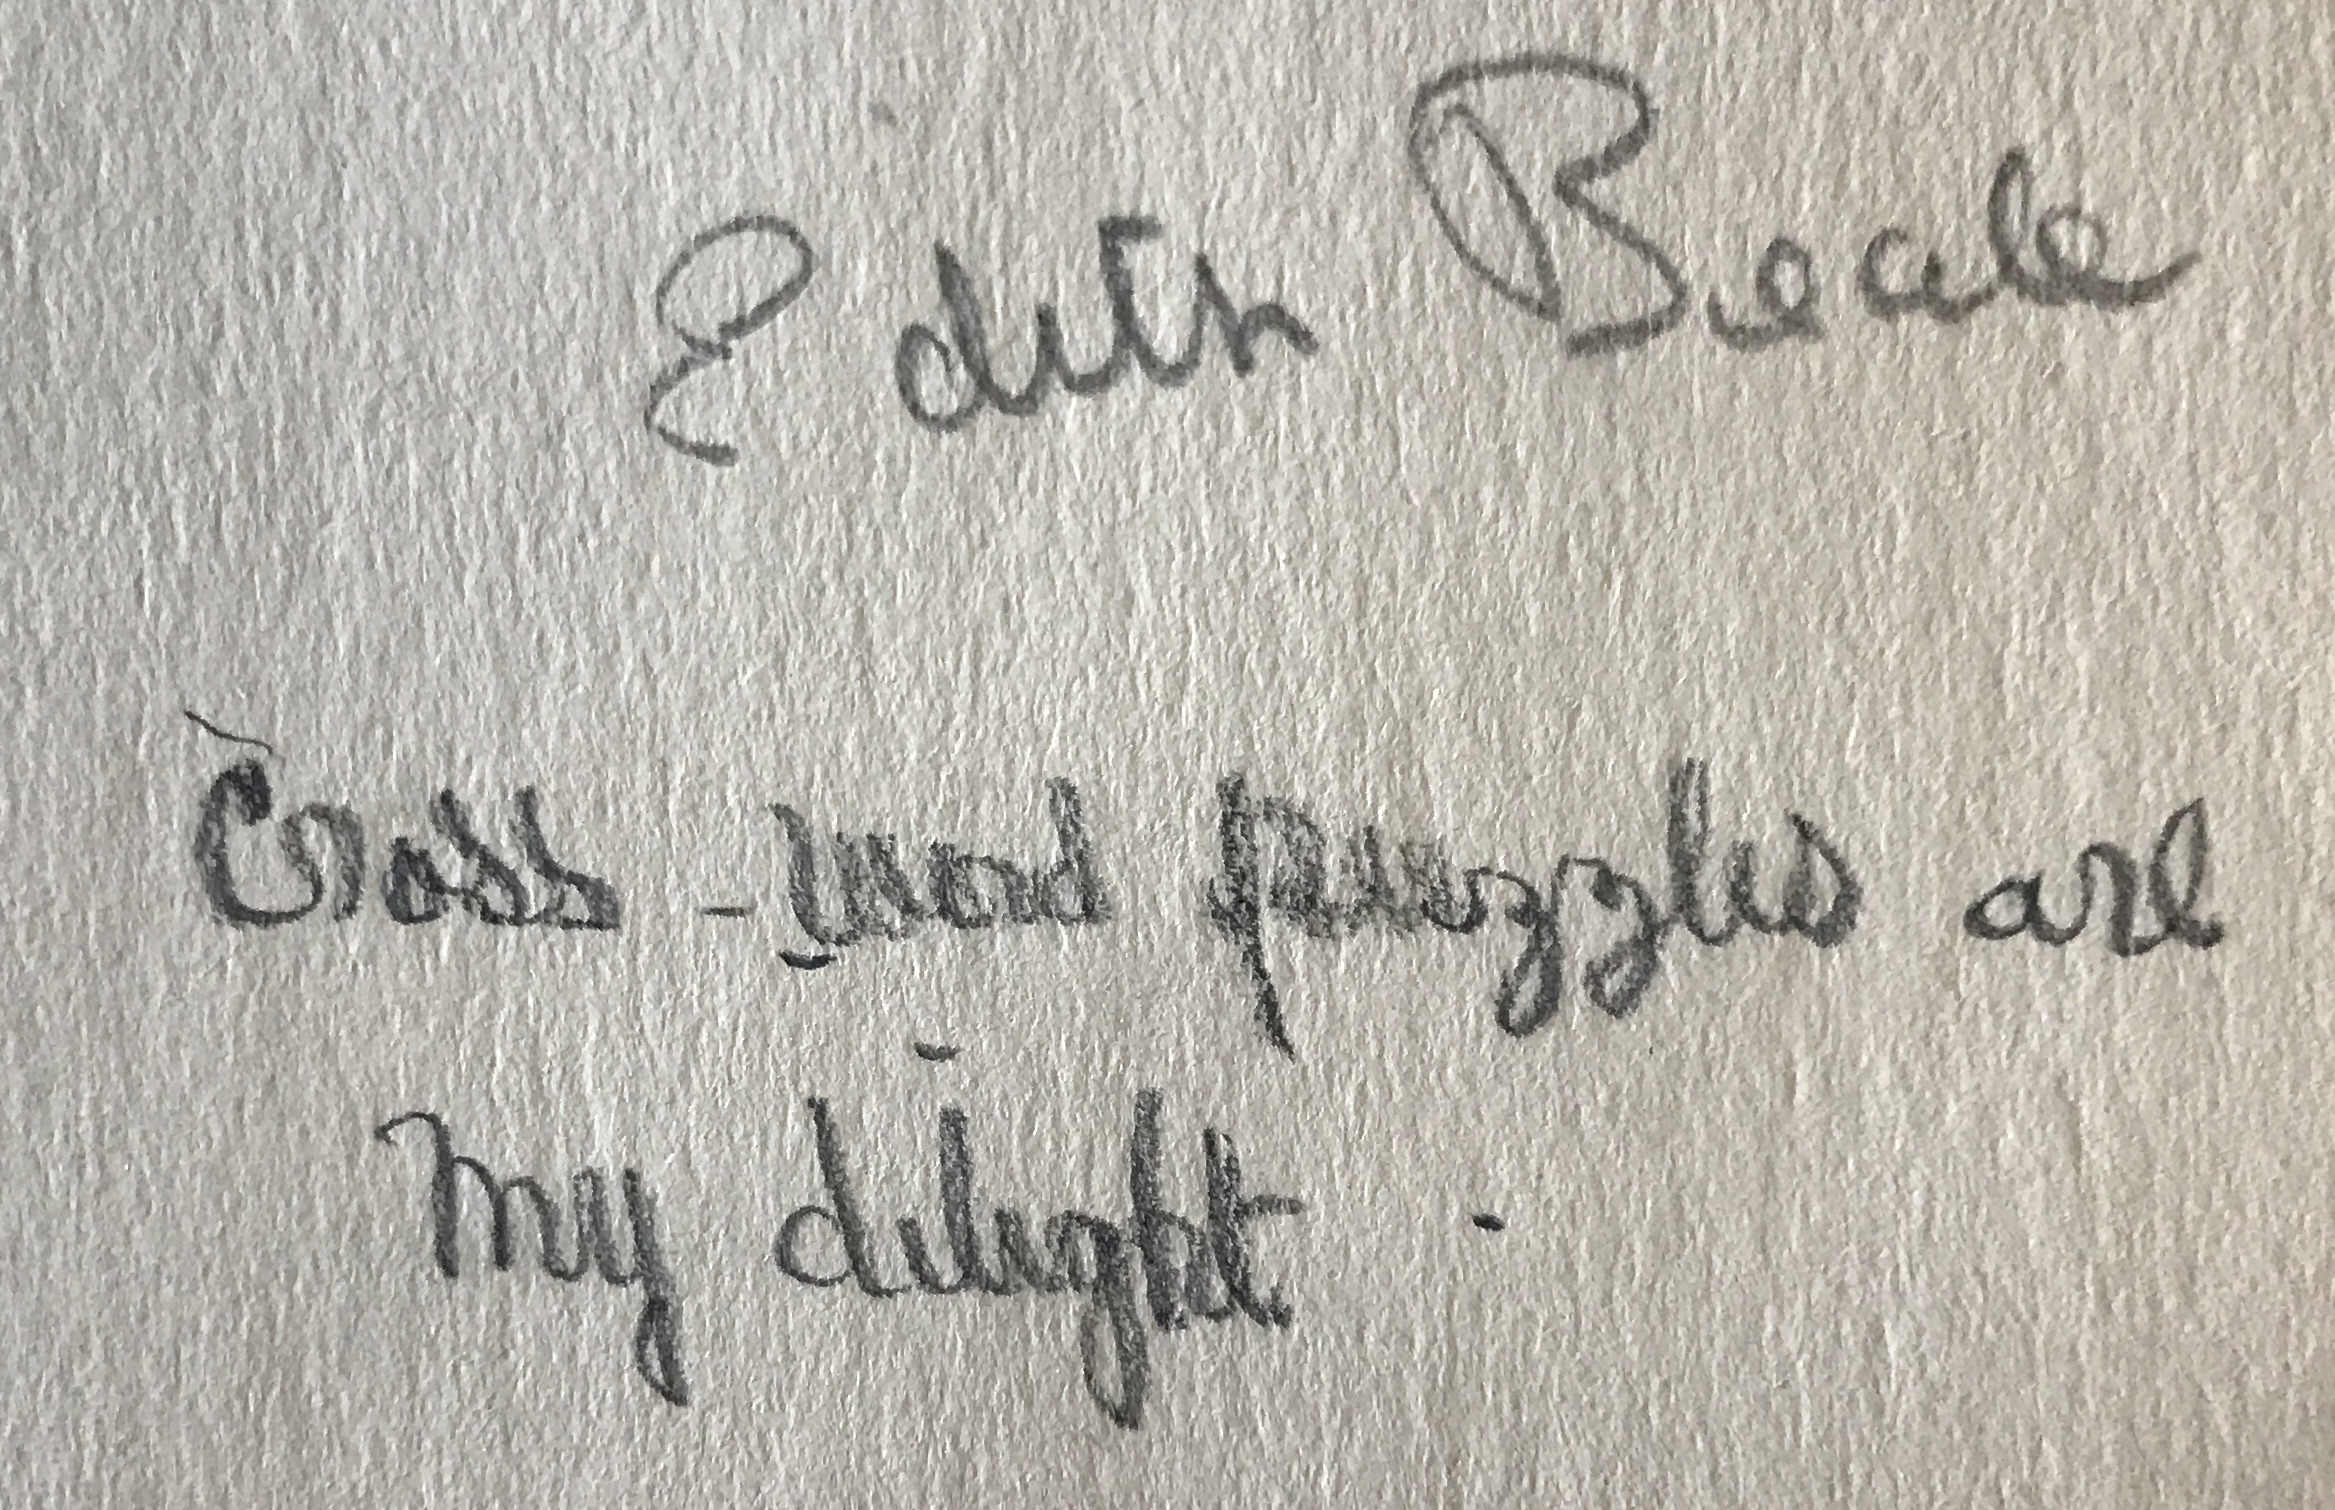 Edith Beale
Cross-word puzzles are
my delight.